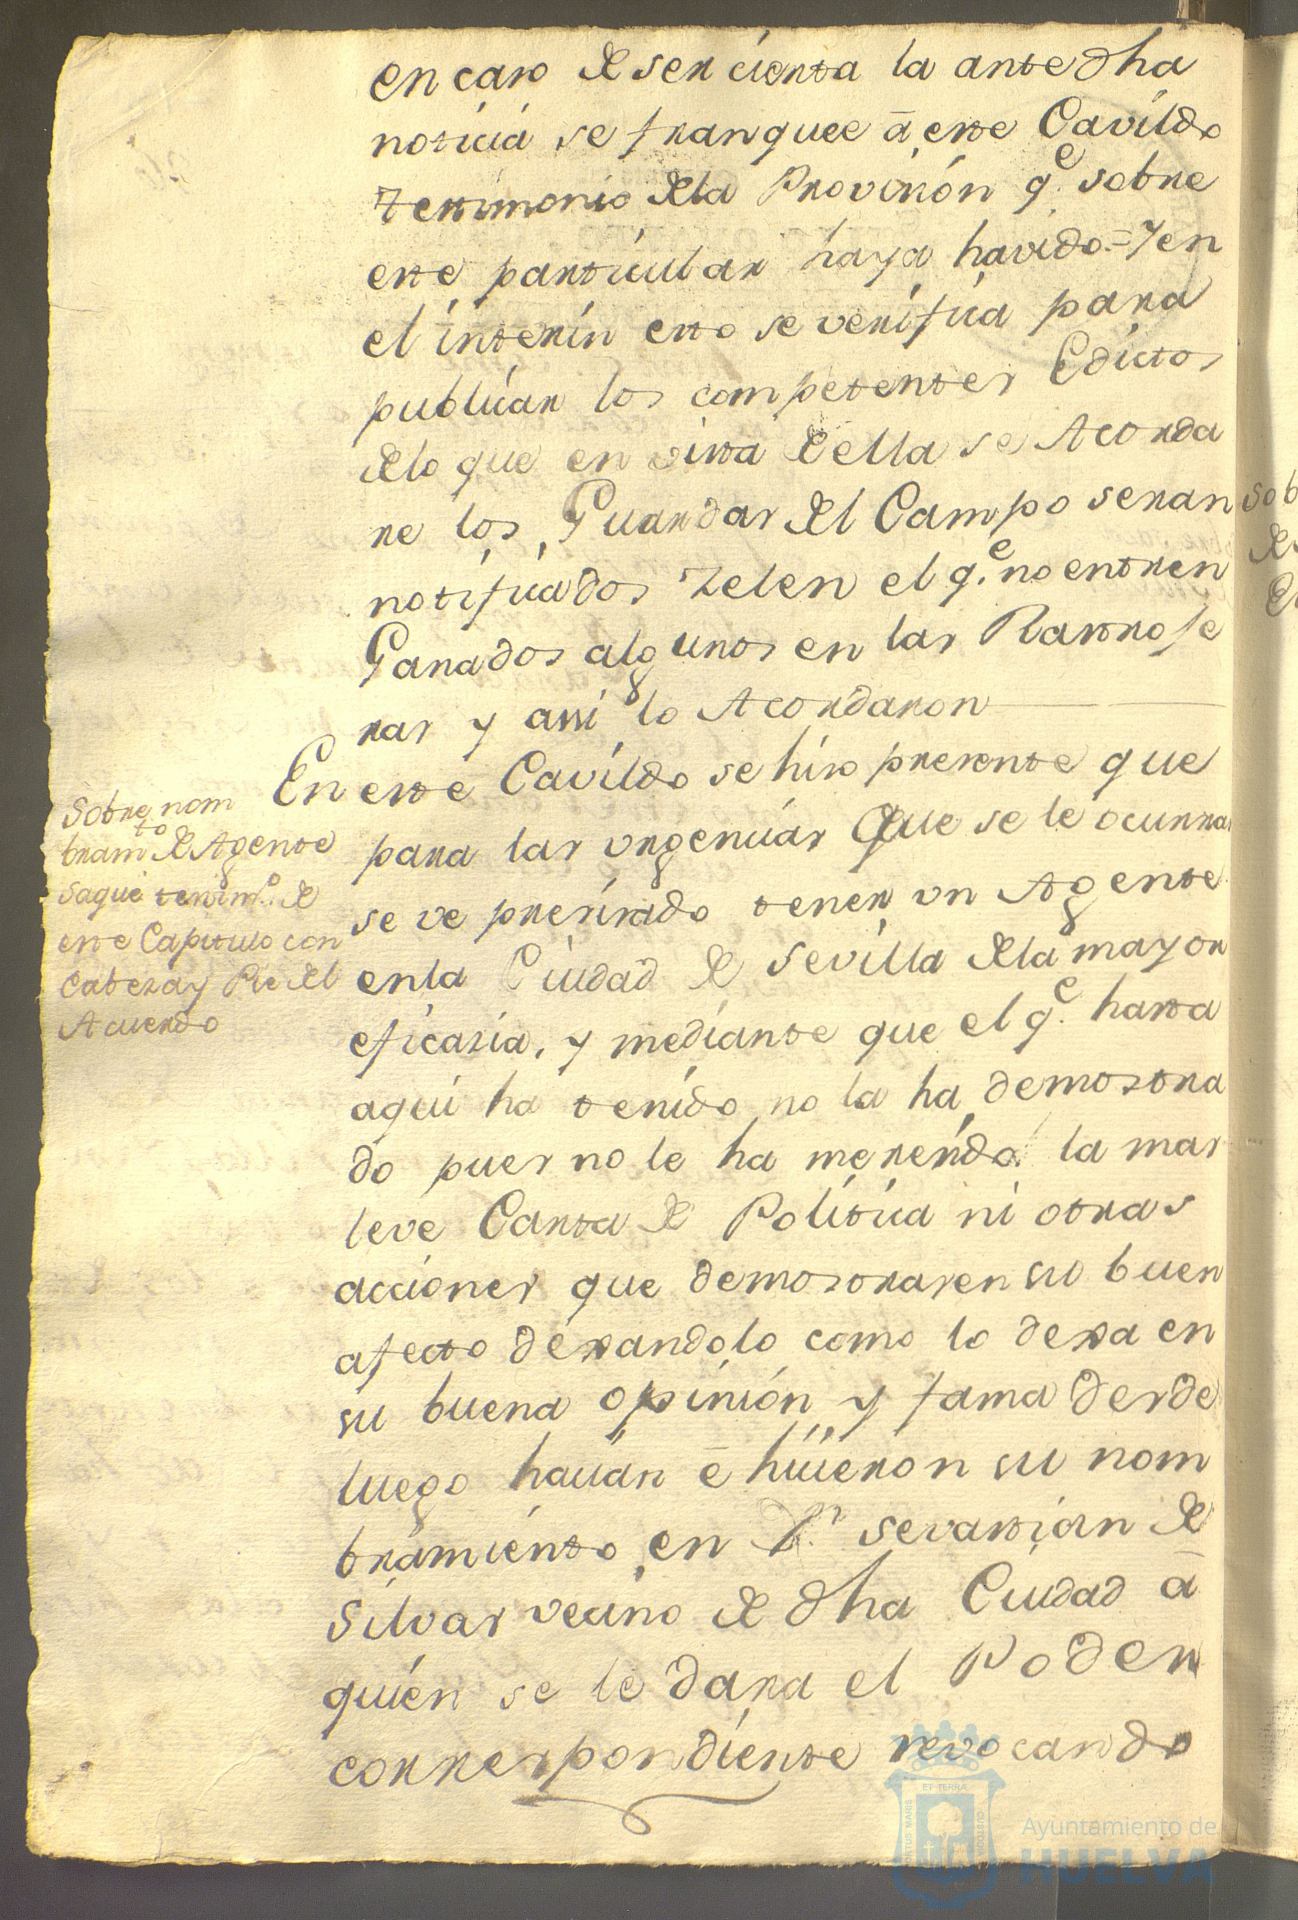 en caso de ser cierta la antedha
noticia se franquee â este Cavildo
Testimonio dela Provision q.e sobre
este particular haya havido = Y en
el interin esto se verifica para
publicar los competentes Edictos
delo que en vista de ella se Acorda
re los Guardas del Campo seran
notificados Zelen el q.e no entren
Ganados algunos en las Rastrofe
ras y assi lo Acordaron
En este Cavildo se hiso presente que
para las vrgencias Que se le ocurra
se ve presisado tener vn Agente
enla Ciudad de Sevilla dela mayor
eficasia, y mediante que el q.e hasta
aqui ha tenido no la ha demostra
do pues no le ha meresido la mas
leve Carta de Politica ni otras
acciones que demostrasen su buen
afecto dexandolo como lo dexa en
su buena opinion y fama desde
luego hacian ê hicieron su nom
bramiento en D.n Sevastian de
Silvar vecino de dha Ciudad â
quien se le dara el Poder
correspondiente revocando
Sobre nom
bramto de Agente
Saque testim.o de
este Capitulo con
Cabeza y Pie del
Acuerdo
Sob
de
ET TERRÆ
PORTUS MARIS
CUSTODIA
Ayuntamiento de
HUELVA